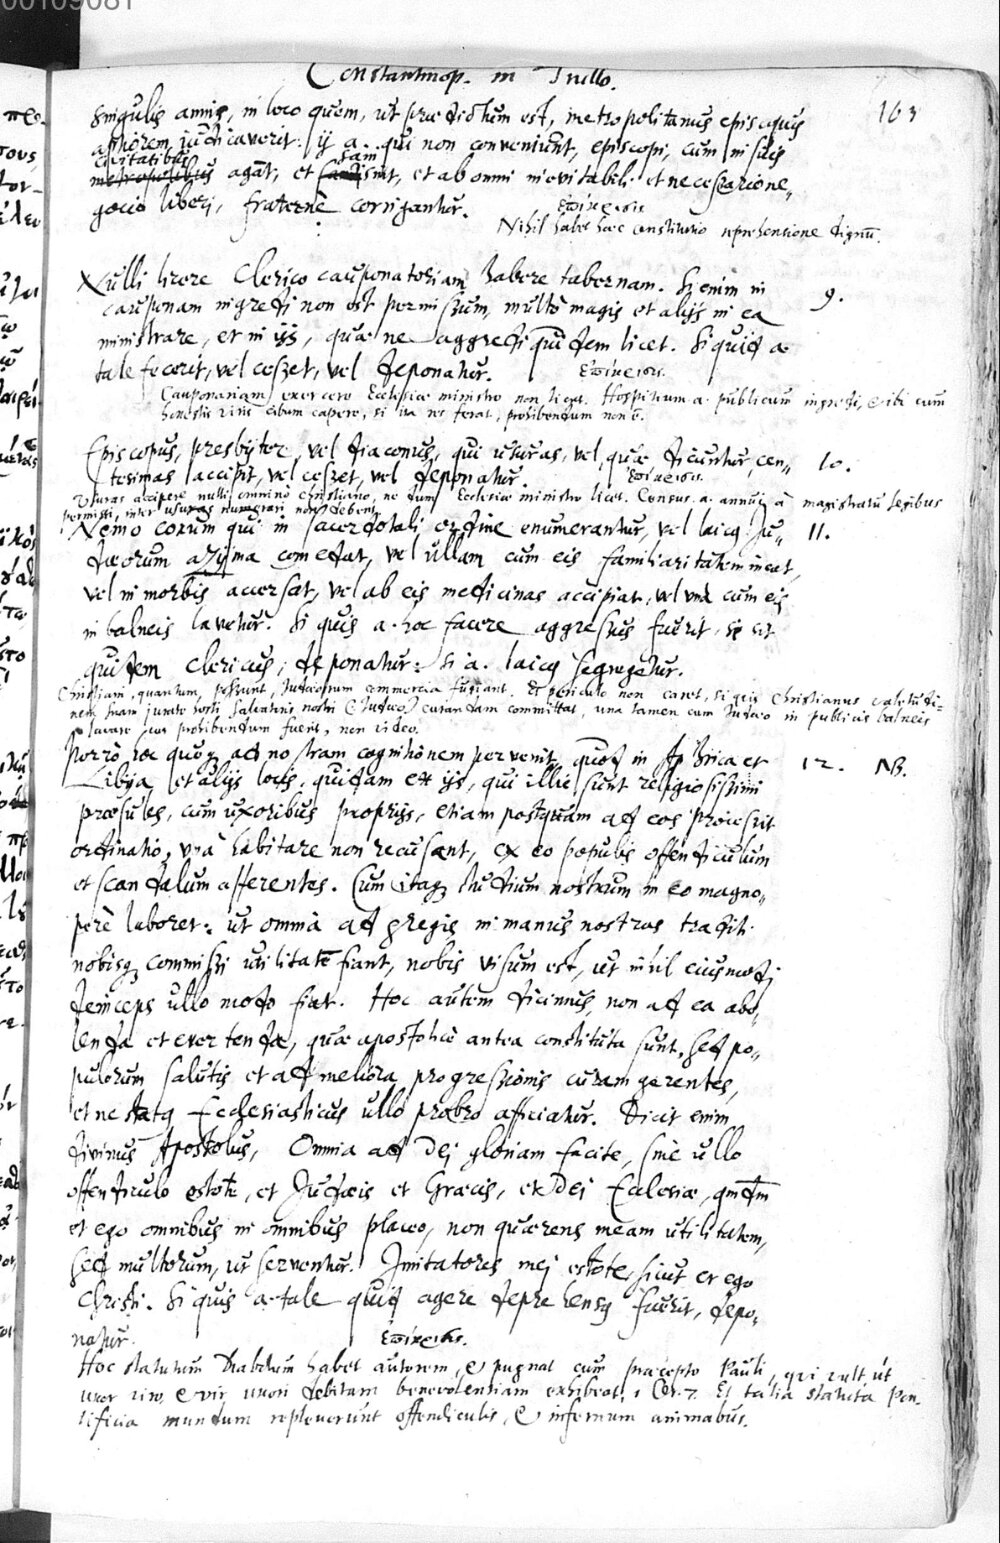 00109081
Constantinop. in Trullo.
163
singulis annis, in loco quem, ut prædictum est, metropolitanus episcopus
aptiorem iudicaverit: ij a. qui non conveniunt, episcopi, cum in suis
civitatibus agāt, et sani sint, et ab omni inevitabili et necessario ne„
gocio liberi, fraternè corrigantur. ἐπίκρισις
Nihil habet hæc constitutio reprehensione dignū.
Nulli licere Clerico cauponatoriam habere tabernam. Si enim in 9.
cauponam ingredi non est permissum, multò magis et alijs in ea
ministrare, et in ijs, quæ ne aggredi quidem licet. Si quid a
tale fecerit, vel cesset, vel deponatur. ἐπίκρισις.
Cauponariam exercere Ecclesiæ ministro non licet. Hospitium a. publicum ingredi, & ibi cum
honestis viris cibum capere, si ita res ferat, prohibendum non ē.
Episcopus, presbyter, vel diaconus, qui usuras, vel, quæ dicuntur, cen„ 10.
tesimas accipit, vel cesset, vel deponatur. ἐπίκρισις.
Usuras accipere nulli omnino Christiano, ne dum Ecclesiæ ministro licet. Census a. annui, à magistratū legibus
permissi, inter usuras numerari non debent.
Nemo eorum qui in sacerdotali ordine enumerantur, vel laicq Ju„ 11.
dæorum azyma comedat, vel ullam cum eis familiaritatem ineat,
vel in morbis accersat, vel ab eis medicinas accipiat, vel unà cum eis
in balneis lavetur. Si quis a. hoc facere aggressus fuerit, si sit
quidem Clericus, deponatur: Si a. laicq segregetur.
Christiani, quantum, possunt, Judæorum commercia fugiant. Et periculo non caret, si quis Christianus valetudi-
nem suam jurato hosti Salvatoris nostri (Judæo) curandam committat, una tamen cum Judæo in publicis balneis
lavare cur prohibendum fuerit, non video.
Porrò hoc quoq ad nostram cognitionem pervenit, quod in Aphrica et 12. NB.
Libya, et alijs locis, quidam ex ijs, qui illic sunt religiosissimi
præsules, cum uxoribus proprijs, etiam postquam ad eos processit
ordinatio, unà habitare non recusant, ex eo populis offendiculum
et scandalum afferentes. Cum itaq studium nostrum in eo magno„
perè laboret: ut omnia ad gregis in manus nostras traditi
nobisq commissi utilitatē fiant, nobis visum est, ut nihil eiusmodi
deinceps ullo modo fiat. Hoc autem dicimus, non ad ea abo„
lenda et evertenda, quæ apostolicè antea constituta sunt, sed po„
pulorum salutis et ad meliora progressionis curam gerentes,
et ne statq Ecclesiasticus ullo probro afficiatur. Dicit enim
divinus Apostolus, Omnia ad Dei gloriam facite, sine ullo
offendiculo estote, et Judæis et Græcis, et Dei Ecclesiæ, qmdm
et ego omnibus in omnibus placeo, non quærens meam utilitatem,
sed multorum, ut serventur. Imitatores mei estote, sicut et ego
Christi. Si quis a. tale quid agere deprehensq fuerit, depo„
natur. ἐπίκρισις.
Hoc statutum Diabolum habet autorem, & pugnat cum præcepto Pauli, qui vult, ut
uxor viro, & vir uxori debitam benevolentiam exhibeat, 1 Cor. 7. Et talia statuta Pon-
tificia mundum repleverunt offendiculis, & infernum animabus.